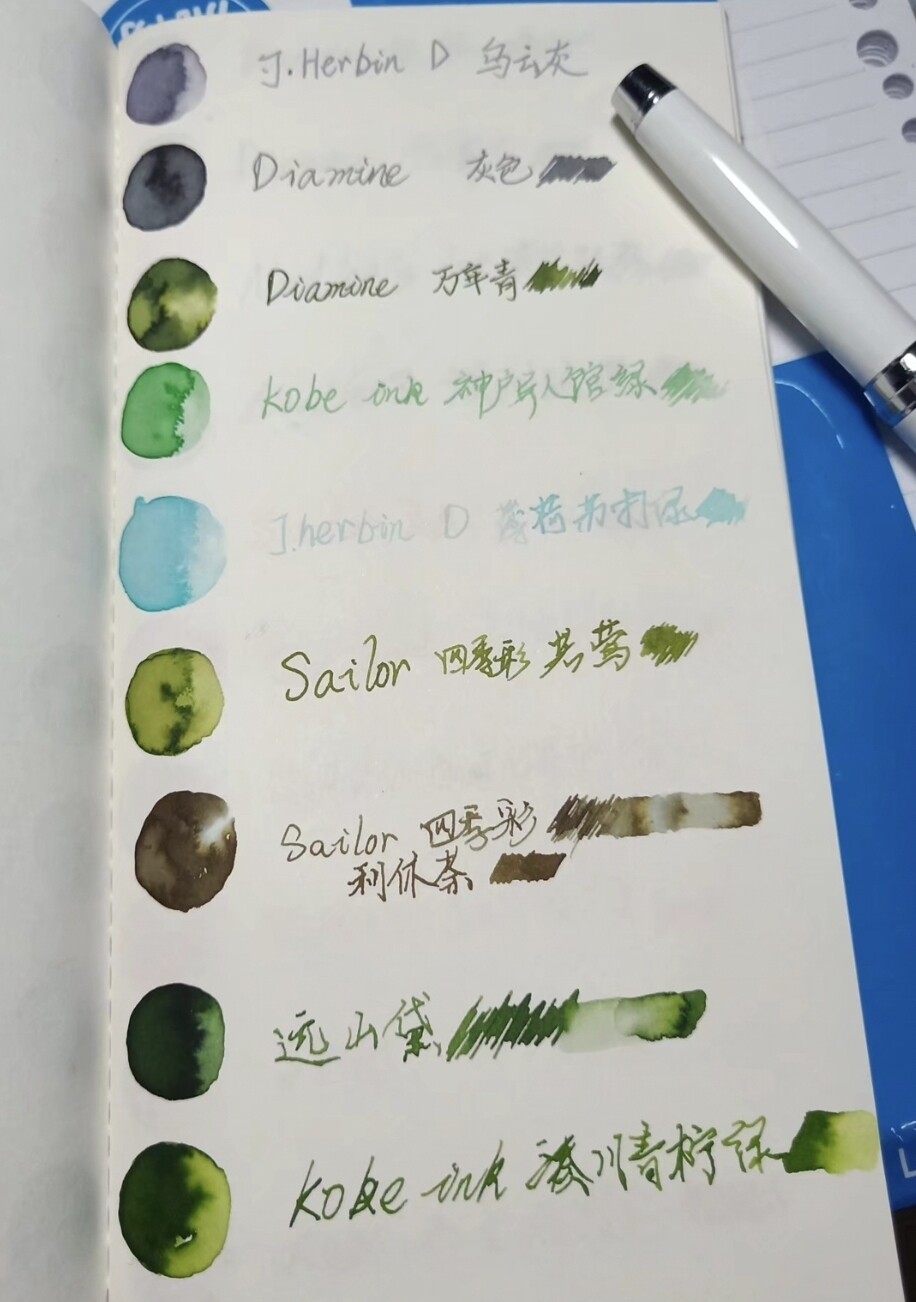 J.Herbin D 乌云灰
Diamine 灰色
Diamine 万年青
Kobe ink 神户异人馆绿
J.herbin D 薄荷苏打绿
Sailor 四季彩 若莺
Sailor 四季彩
利休茶
远山黛
Kobe ink 湊川青柠绿